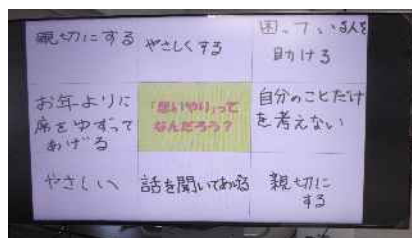 親切にする
やさしくする
困っている人を
助ける
お年よりに
席をゆずって
あげる
「思いやり」って
なんだろう？
自分のことだけ
を考えない
やさしい
話を聞いてあげる
親切に
する